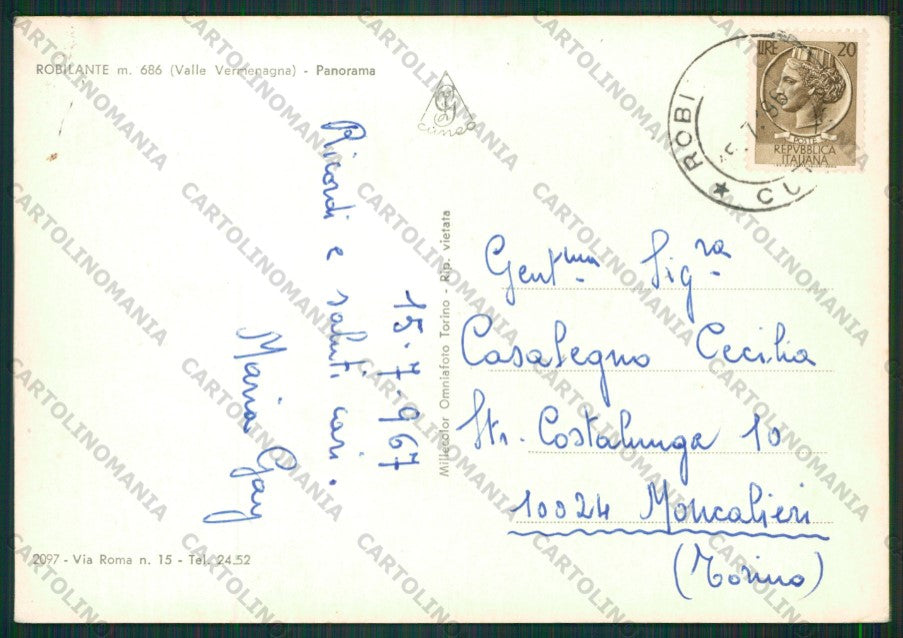 ROBILANTE m. 686 (Valle Vermenagna) - Panorama
cuneo
LIRE 20
POSTE
REPVBBLICA
ITALIANA
★ ROBI
CU
15-7-967
Ricordi e saluti cari.
Maria Gay
Millecolor Omniafoto Torino - Rip. vietata
Gent.ma Sig.ra
Casalegno Cecilia
Str. Costalunga 10
10024 Moncalieri
(Torino)
2097 - Via Roma n. 15 - Tel. 24.52
CARTOLINOMANIA